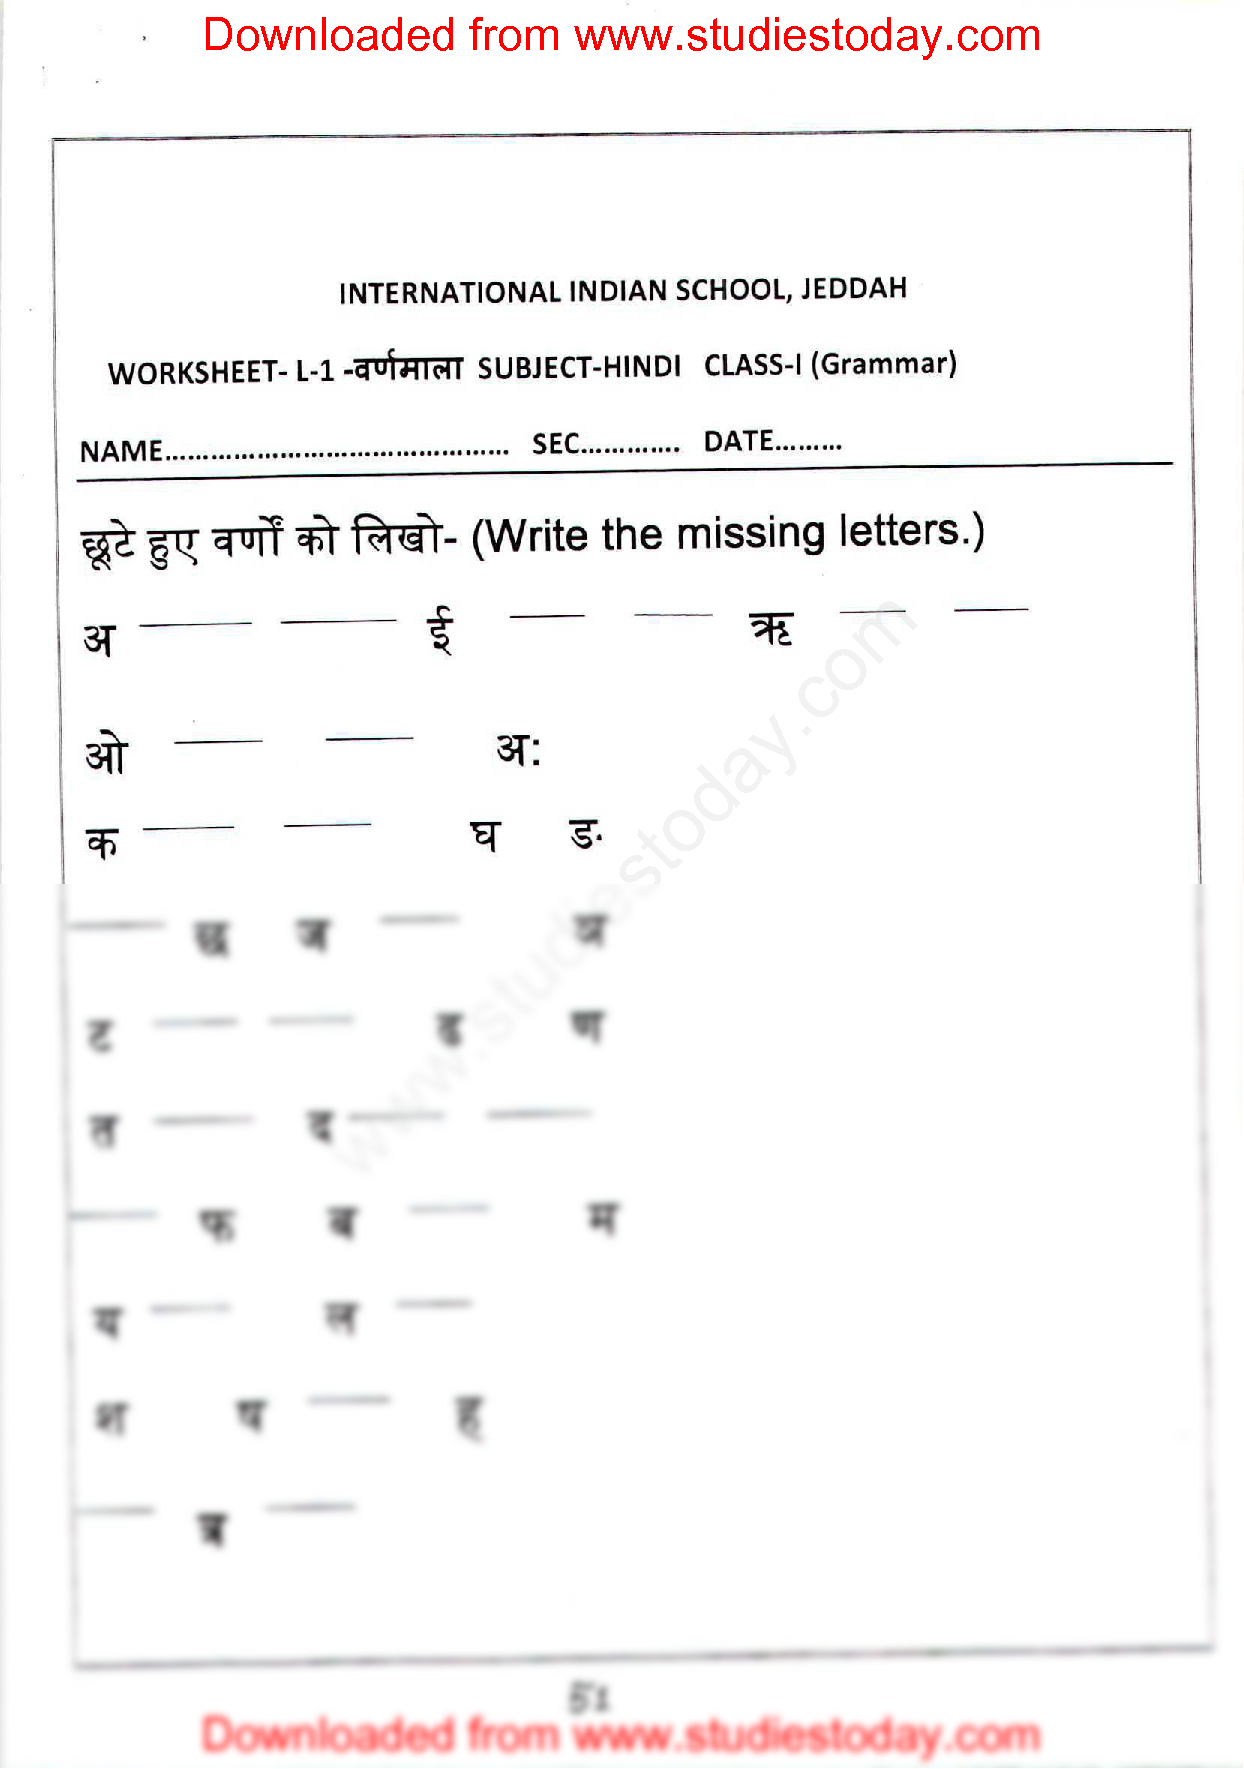 Downloaded from www.studiestoday.com
INTERNATIONAL INDIAN SCHOOL, JEDDAH
WORKSHEET- L-1 -वर्णमाला SUBJECT-HINDI CLASS-I (Grammar)
NAME............................................. SEC............. DATE.........
छूटे हुए वर्णों को लिखो- (Write the missing letters.)
अ ___ ___ ई ___ ___ ऋ ___ ___
ओ ___ ___ अः
क ___ ___ घ ङ
___ छ ज ___ ञ
ट ___ ___ ढ ण
त ___ द ___ ___
___ फ ब ___ म
य ___ ल ___
श ष ___ ह
___ त्र ___
51
Downloaded from www.studiestoday.com
www.studiestoday.com